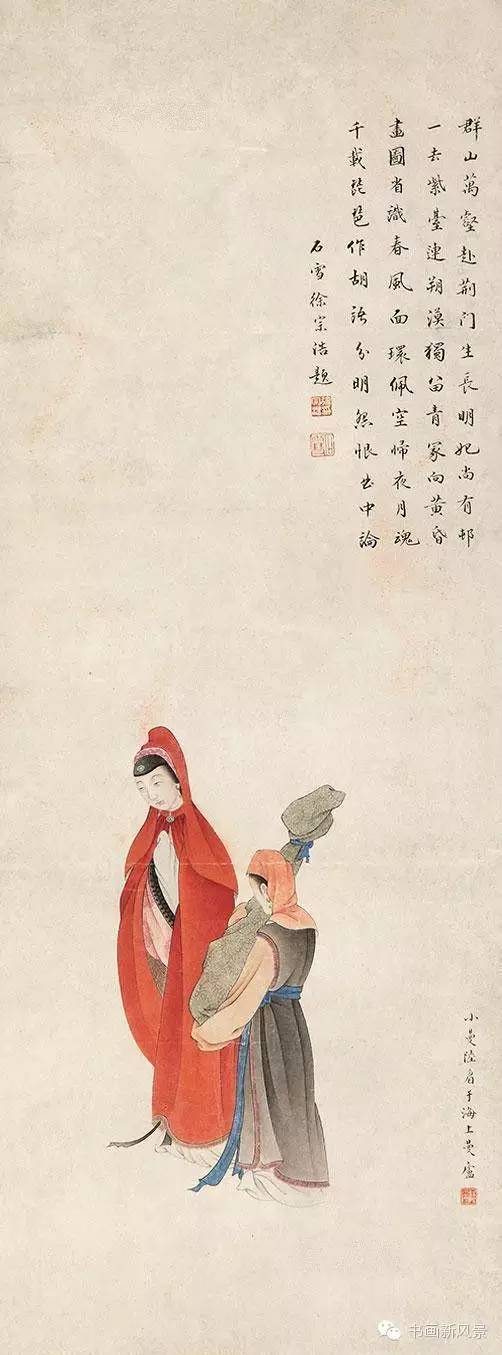 群山萬壑赴荆门生長明妃尚有邨
一去紫臺連朔漠獨留青冢向黃昏
畫圖省識春風面環佩空歸夜月魂
千載琵琶作胡語分明怨恨曲中論
石雪徐宗浩題
小曼陸眉于海上曼廬
书画新风景